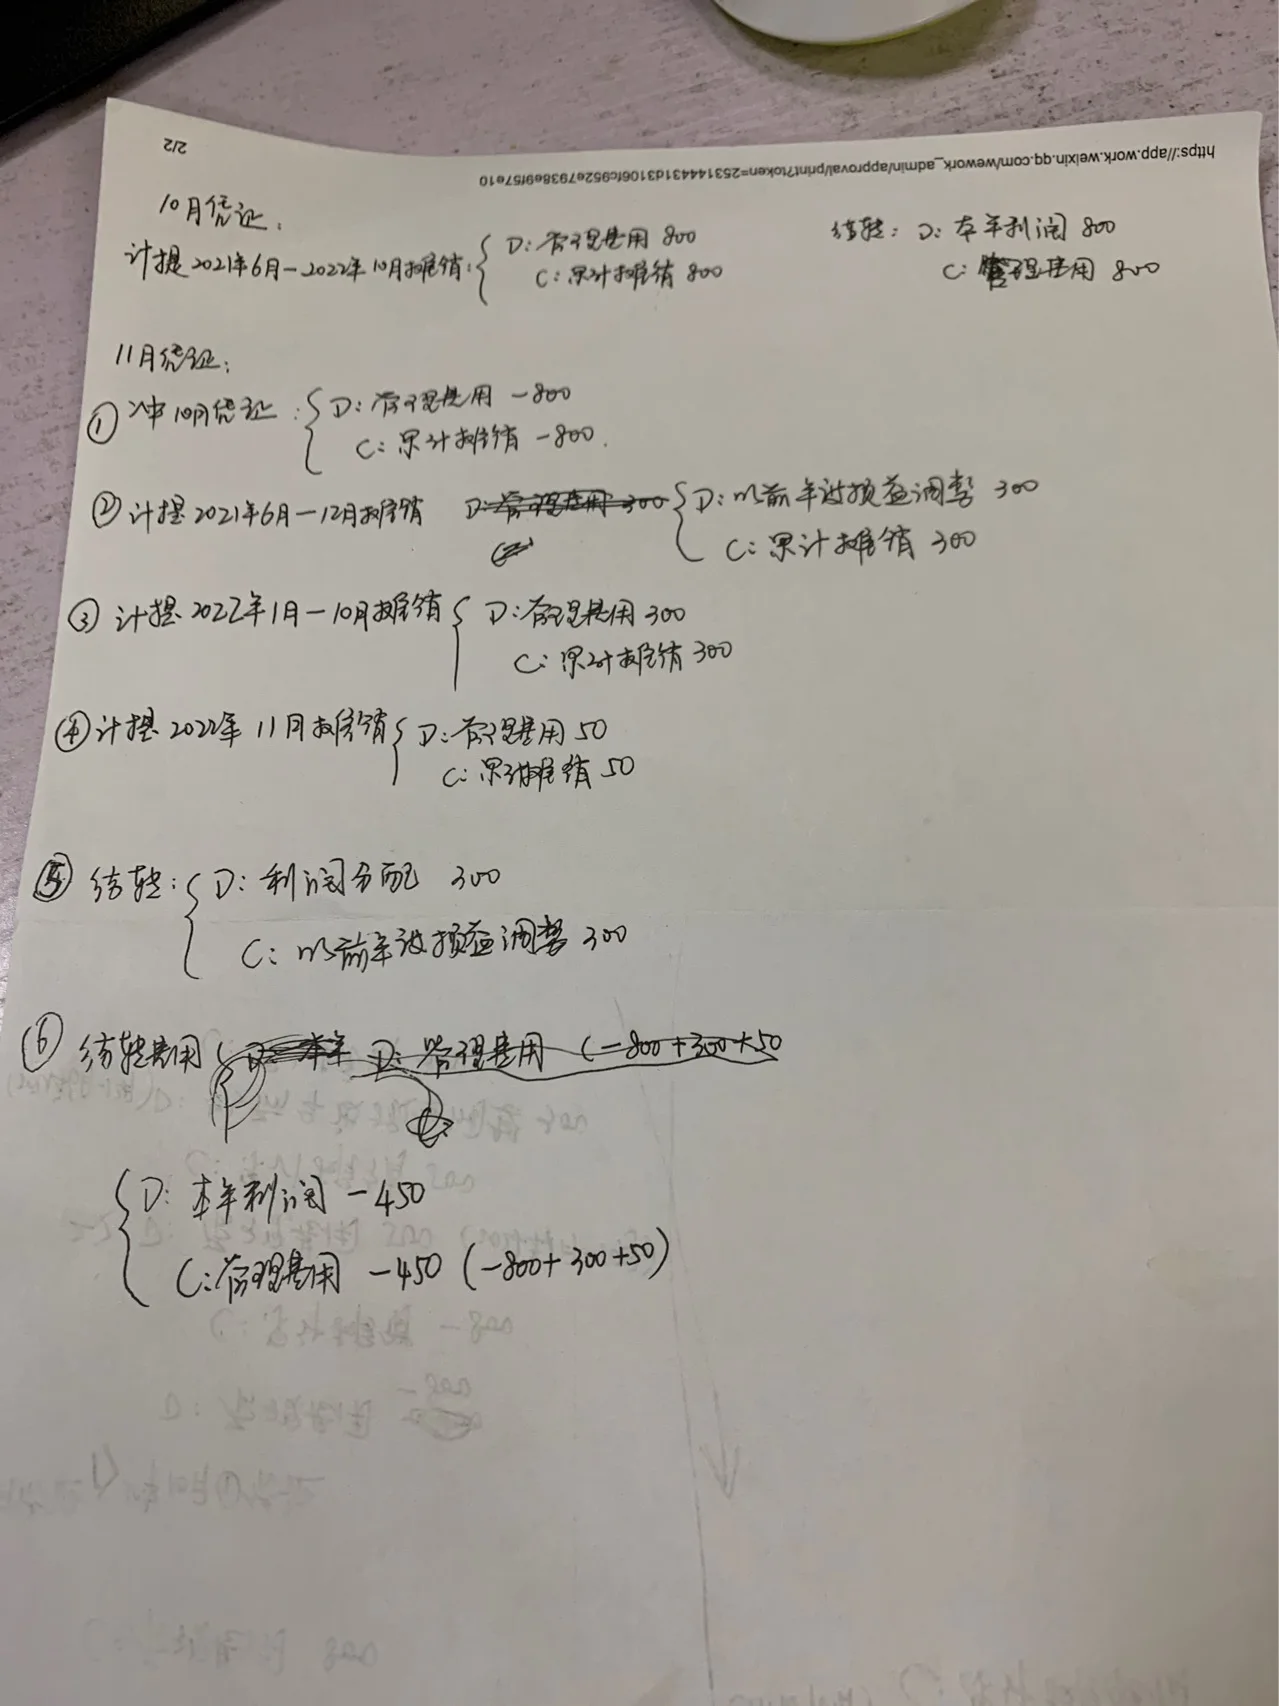 https://app.work.weixin.qq.com/wework_admin/approval/print?token=25314443
2/2
10月凭证:
计提2021年6月—2022年10月摊销: D: 管理费用 800
C: 累计摊销 800
结转: D: 本年利润 800
C: 管理费用 800
11月凭证:
① 冲10月凭证: D: 管理费用 -800
C: 累计摊销 -800.
② 计提2021年6月—12月摊销 D: 管理费用 300 D: 以前年度损益调整 300
C: 累计摊销 300
③ 计提2022年1月—10月摊销 D: 管理费用 300
C: 累计摊销 300
④ 计提2022年11月摊销 D: 管理费用 50
C: 累计摊销 50
⑤ 结转: D: 利润分配 300
C: 以前年度损益调整 300
⑥ 结转费用 D: 本年 D: 管理费用 (-800+300+50
D: 本年利润 -450
C: 管理费用 -450 (-800+300+50)